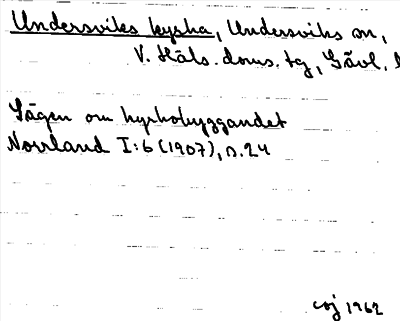 Undersviks kyrka, Undersviks sn,
V. Häls. doms. tg, Gävl. l
Sägen om kyrkobyggandet
Norrland I:6 (1907), s. 24
coj 1962